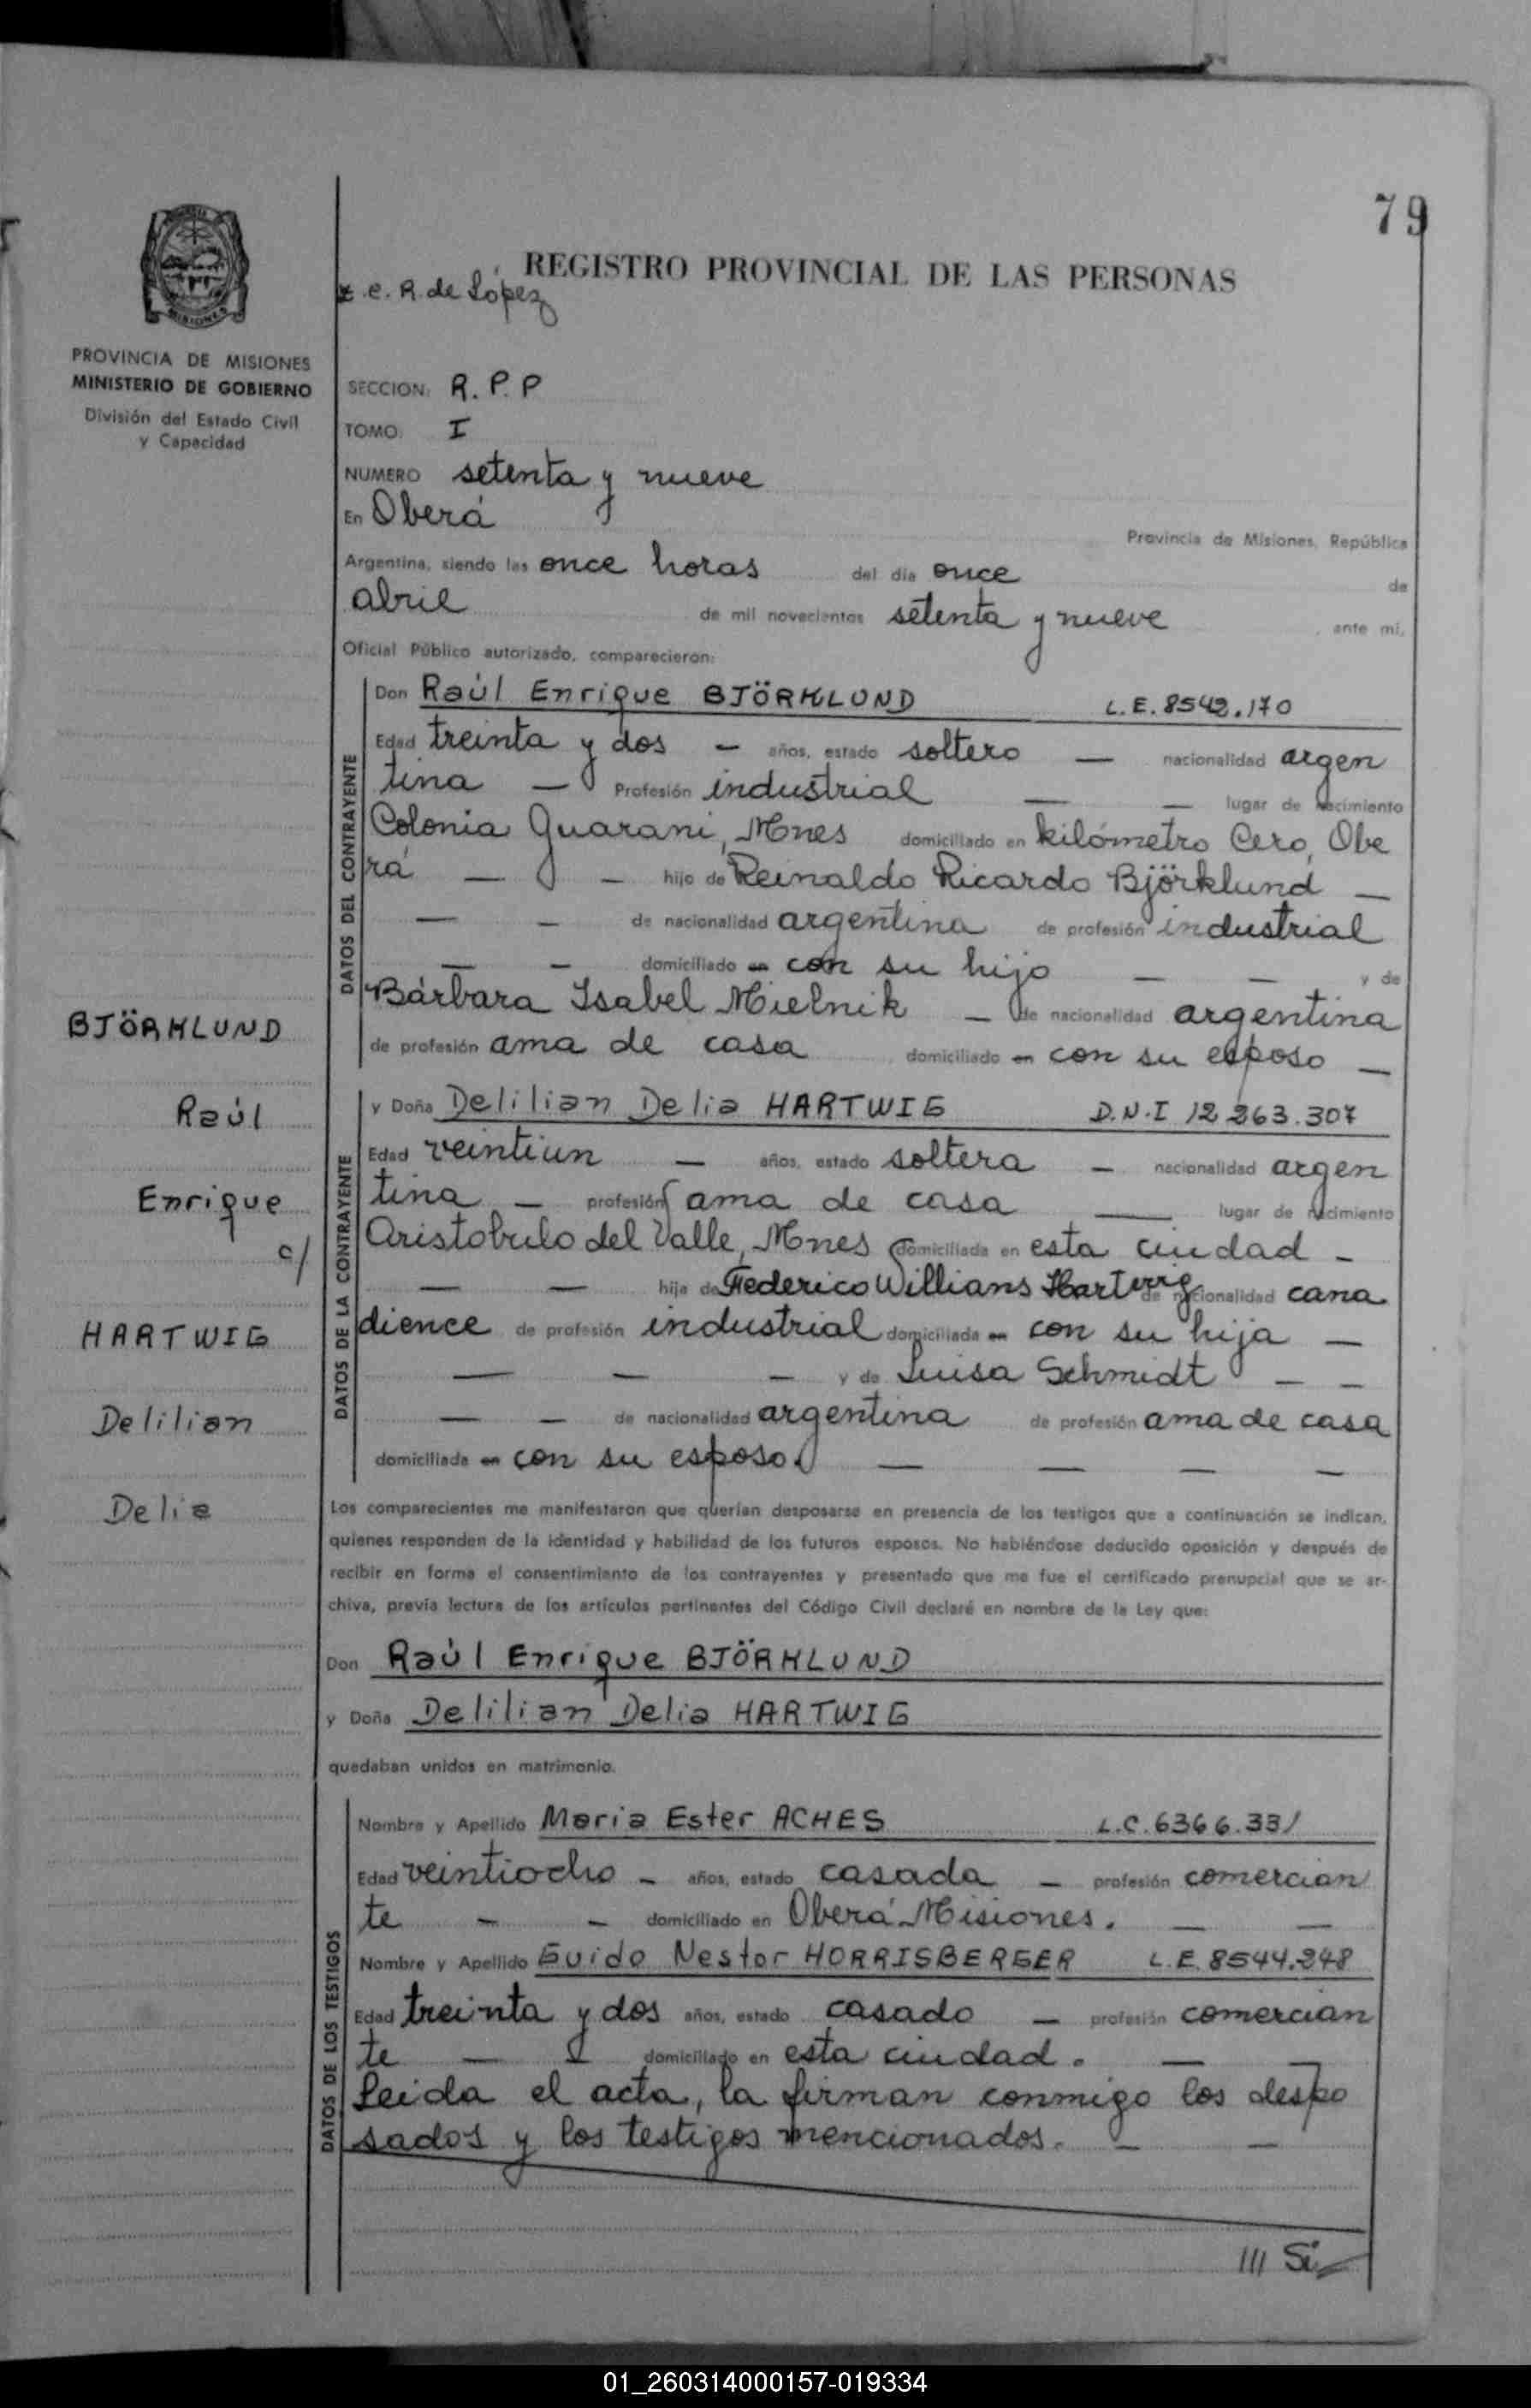 79
REGISTRO PROVINCIAL DE LAS PERSONAS
e. R. de López
PROVINCIA DE MISIONES
MINISTERIO DE GOBIERNO
División del Estado Civil
y Capacidad
MISIONES
SECCION: R. P. P
TOMO: I
NUMERO setenta y nueve
En Oberá
Provincia de Misiones, República
Argentina, siendo las once horas del día once de
abril de mil novecientos setenta y nueve , ante mi,
Oficial Público autorizado, comparecieron:
DATOS DEL CONTRAYENTE
Don Raúl Enrique BJÖRKLUND L.E. 8542.170
Edad treinta y dos — años, estado soltero — nacionalidad argen
tina — Profesión industrial — — lugar de nacimiento
Colonia Guarani, Mnes domiciliado en kilómetro Cero, Obe
rá — — hijo de Reinaldo Ricardo Björklund —
— — de nacionalidad argentina de profesión industrial
— — domiciliado en con su hijo — — y de
Bárbara Isabel Mielnik — de nacionalidad argentina
de profesión ama de casa domiciliado en con su esposo —
BJÖRKLUND
Raúl
Enrique
c/
HARTWIG
Delilian
Delia
DATOS DE LA CONTRAYENTE
y Doña Delilian Delia HARTWIG D.N.I 12 263.307
Edad veintiun — años, estado soltera — nacionalidad argen
tina — profesión ama de casa — lugar de nacimiento
Aristobulo del Valle, Mnes domiciliada en esta ciudad —
— — hija de Federico Willians Hartwig de nacionalidad cana
dience de profesión industrial domiciliada en con su hija —
— — — y de Luisa Schmidt — —
— — de nacionalidad argentina de profesión ama de casa
domiciliada en con su esposo. — — — —
Los comparecientes me manifestaron que querían desposarse en presencia de los testigos que a continuación se indican,
quienes responden de la identidad y habilidad de los futuros esposos. No habiéndose deducido oposición y después de
recibir en forma el consentimiento de los contrayentes y presentado que me fue el certificado prenupcial que se ar-
chiva, previa lectura de los artículos pertinentes del Código Civil declaré en nombre de la Ley que:
Don Raúl Enrique BJÖRKLUND
y Doña Delilian Delia HARTWIG
quedaban unidos en matrimonio.
DATOS DE LOS TESTIGOS
Nombre y Apellido Maria Ester ACHES L.C. 6366.331
Edad veintiocho — años, estado casada — profesión comercian
te — — domiciliado en Oberá Misiones. — —
Nombre y Apellido Guido Nestor HORRISBERGER L.E. 8544.248
Edad treinta y dos años, estado casado — profesión comercian
te — domiciliado en esta ciudad. — —
Leida el acta, la firman conmigo los despo
sados y los testigos mencionados. — —
/// Si
01_260314000157-019334